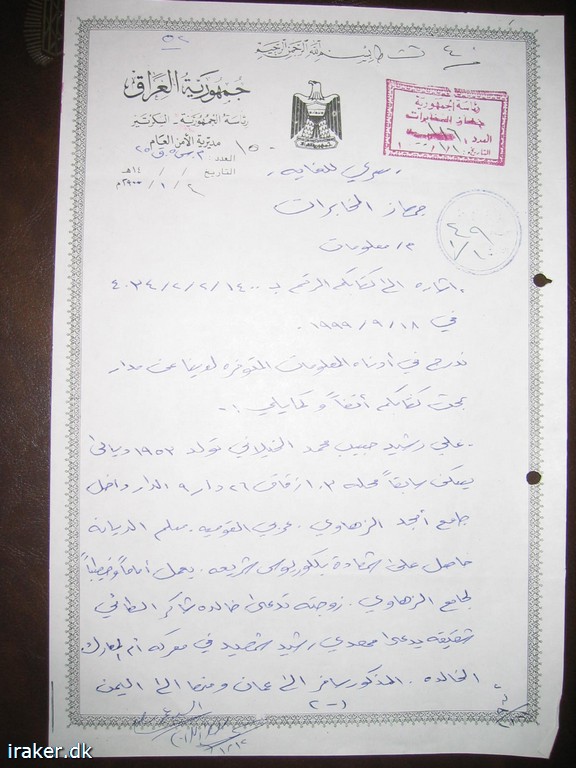 بسم الله الرحمن الرحيم
جمهورية العراق
رئاسة الجمهورية - السكرتير
مديرية الأمن العام
العدد
التاريخ / / ١٤هـ
٢ / ١ / ٢٠٠٠م
رئاسة الجمهورية
جهاز المخابرات
العدد
التاريخ
سري للغاية
جهاز المخابرات
م/ معلومات
اشارة الى كتابكم المرقم بـ ٤٠٣٤/٢/٢/١٤٠٠
في ١٨/٩/١٩٩٩ .
ندرج في أدناه المعلومات المتوفرة لدينا عن مدار
بحث كتابكم أنفاً وكمايلي :-
. علي رشيد حبيب محمد الخيلاني تولد ١٩٥٣ ديالى
يسكن سابقاً محلة ٣٠١ زقاق ٢٦ دار ٩ الدار داخل
جامع أمجد الزهاوي . عربي القومية . مسلم الديانة
حاصل على شهادة بكلوريوس شريعة . يعمل أماماً وخطيباً
لجامع الزهاوي . زوجته تدعى خالدة شاكر الطائي
شقيقه يدعى مهدي رشيد شهيد في معركة أم المعارك
الخالدة . المذكور سافر الى عمان ومنها الى اليمن
١-٢
iraker.dk